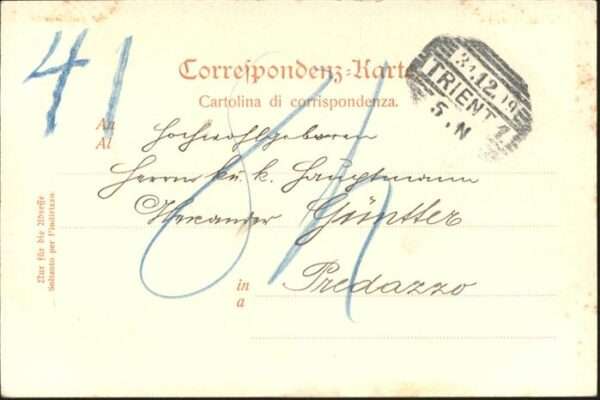 41
Correspondenz-Karte
Cartolina di corrispondenza.
31.12.99
TRIENT 1
5.N
An
Al
Hochwohlgeboren
Herrn k. u. k. Hauptmann
Alexander Günther
in
a
Predazzo
Nur für die Adresse
Soltanto per l'indirizzo